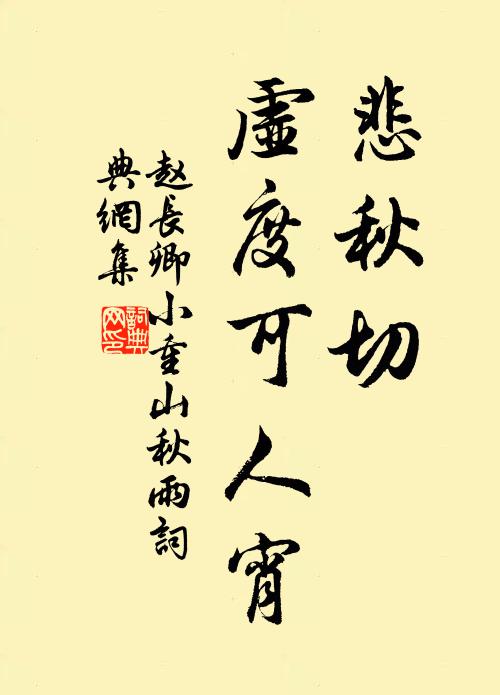 悲秋切
虛度可人宵
赵長卿小重山秋雨詞
典網集
詞典
网印